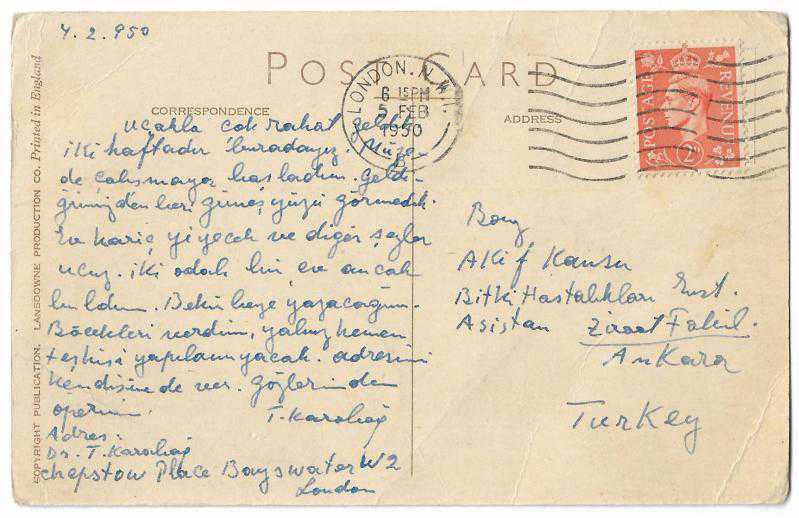 4.2.950
POST CARD
CORRESPONDENCE
ADDRESS
LONDON. N.W.
6 15 PM
5 FEB
1950
POSTAGE REVENUE
2D
COPYRIGHT PUBLICATION. LANSDOWNE PRODUCTION CO. Printed in England
Uçakla çok rahat geldik
iki haftadır buradayız. Müze
de çalışmaya başladım. Geldi-
ğimizden beri güneş yüzü görmedik.
Ev hariç yiyecek ve diğer şeyler
ucuz. iki odalı bir ev ancak
buldum. Bekir beye yazacağım.
Böcekleri verdim, yalnız hemen
teşhisi yapılamıyacak. adresimi
kendisine de ver. Gözlerinden
öperim.
T. Karabağ
Adres:
Dr. T. Karabağ
Chepstow Place Bayswater W2
London
Bay
Akif Kansu
Bitki Hastalıkları Enst.
Asistan Ziraat Fakül.
Ankara
Turkey